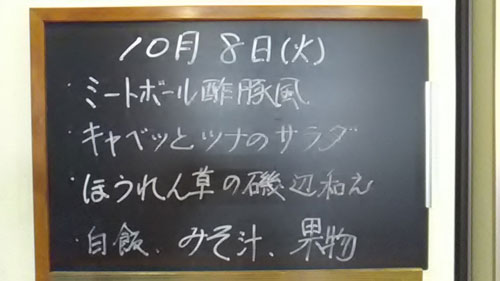 10月8日(火)
・ミートボール酢豚風
・キャベツとツナのサラダ
・ほうれん草の磯辺和え
・白飯、みそ汁、果物